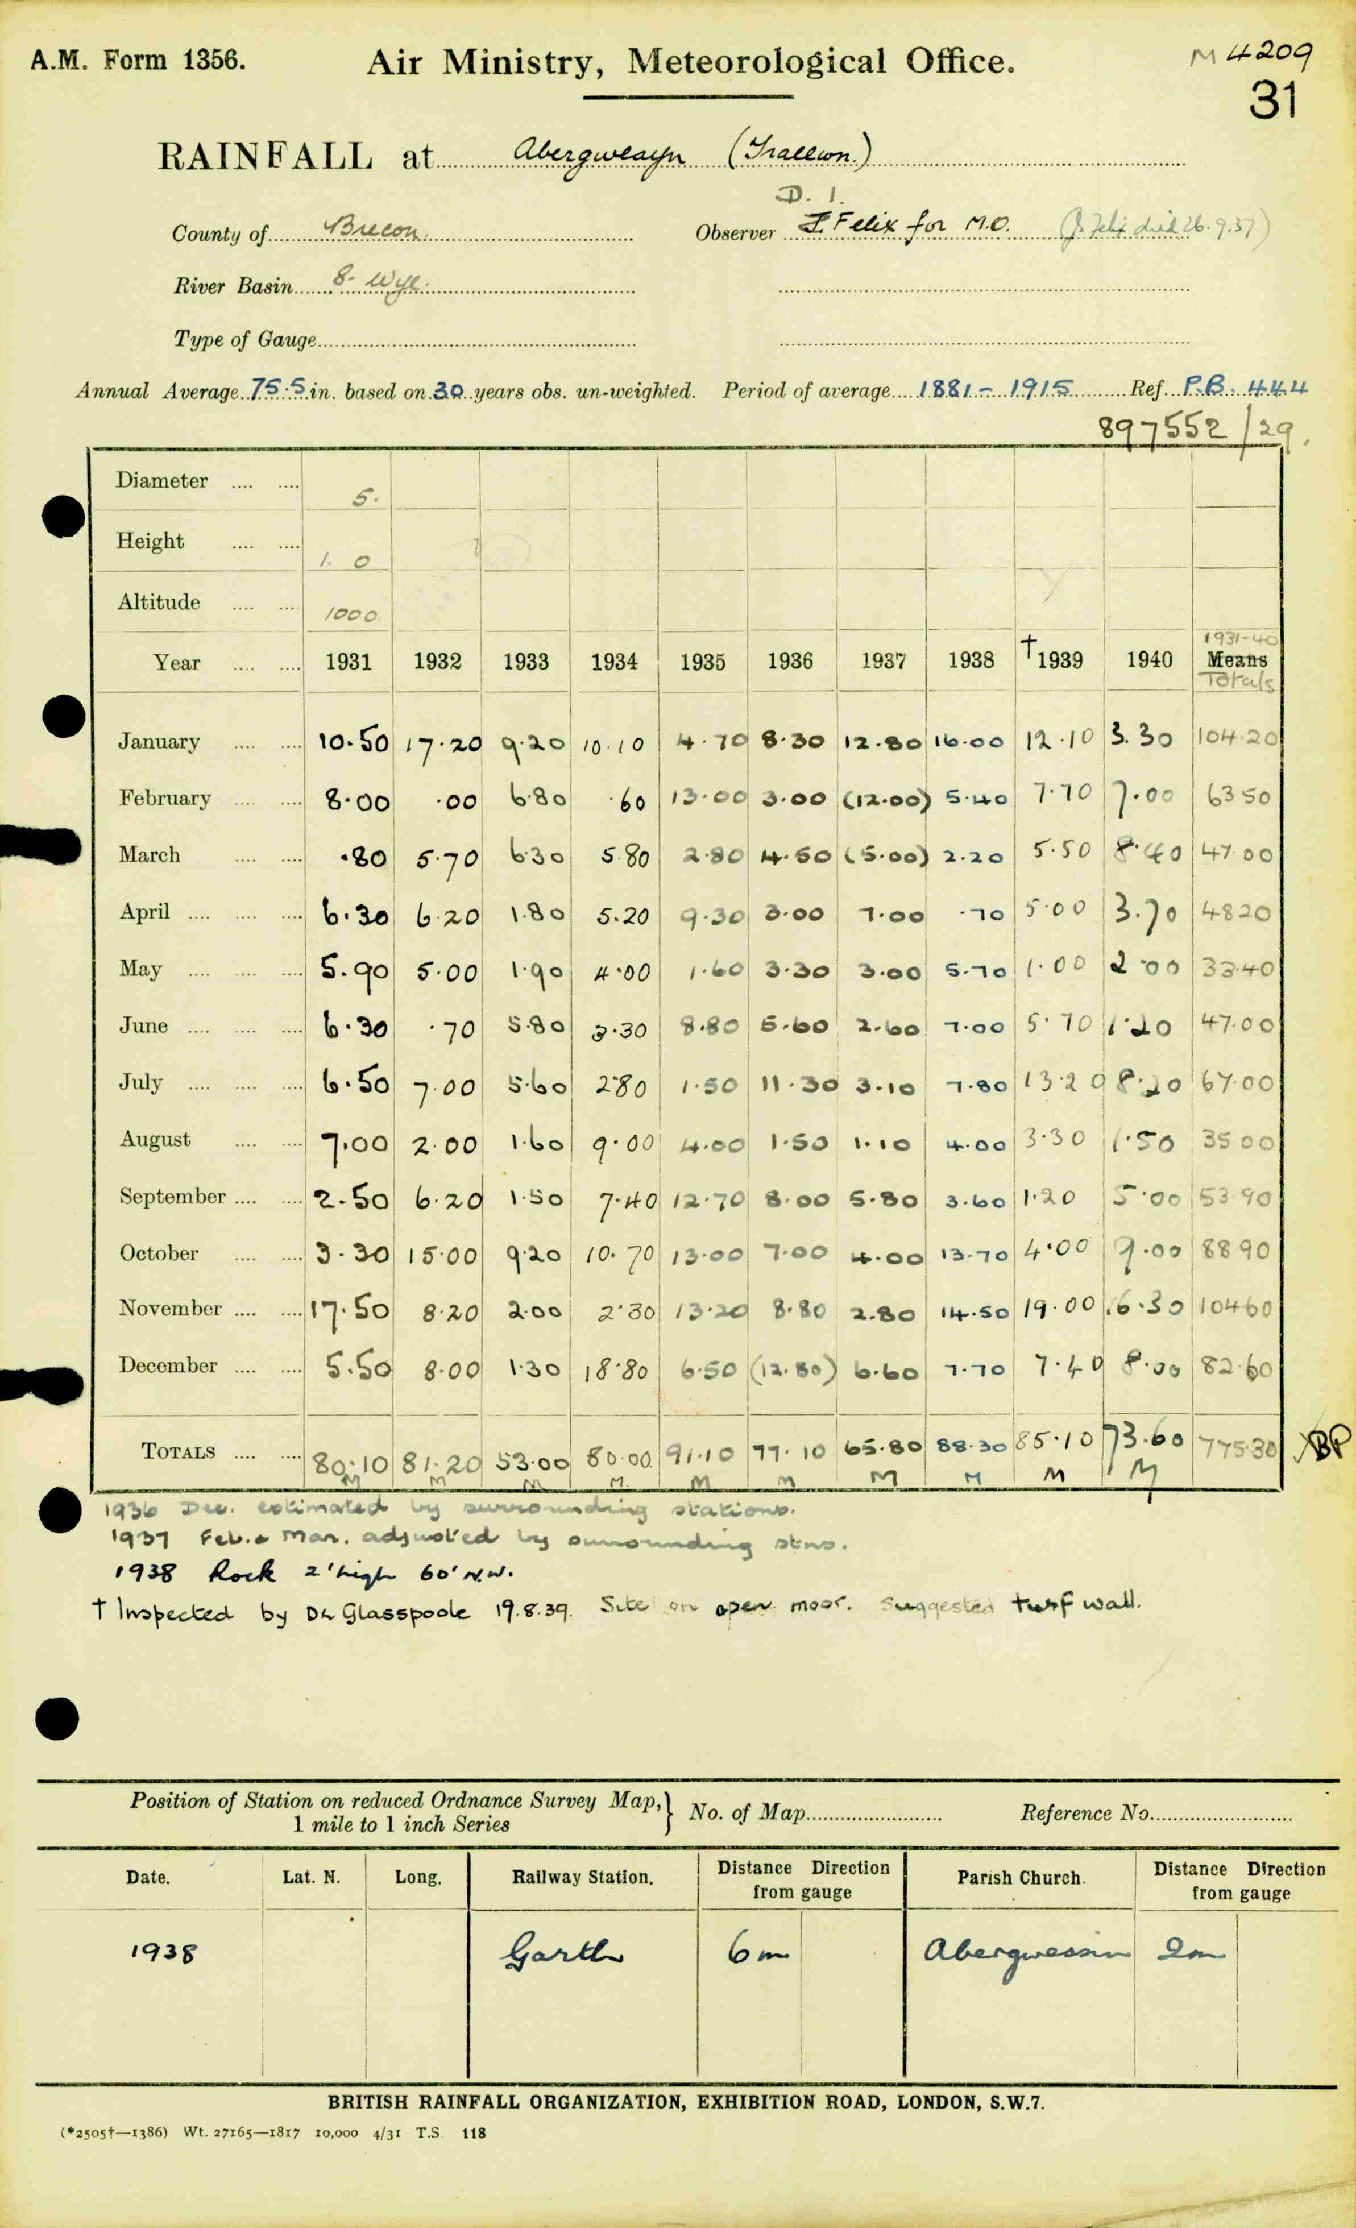 A.M. Form 1356.
Air Ministry, Meteorological Office.
M 4209
31
RAINFALL at Abergwesyn (Trallwm.)
D. I.
County of Brecon. Observer J. Felix for M.O. (J Felix died 26.9.37)
River Basin 8. Wye.
Type of Gauge
Annual Average 75.5 in. based on 30 years obs. un-weighted. Period of average 1881 - 1915 Ref. P.B. 444
897552/29.
Diameter 5.
Height 1. 0
Altitude 1000
1931-40
Year 1931 1932 1933 1934 1935 1936 1937 1938 †1939 1940 Means
Totals
January 10.50 17.20 9.20 10.10 4.70 8.30 12.80 16.00 12.10 3.30 104 20
February 8.00 .00 6.80 .60 13.00 3.00 (12.00) 5.40 7.70 7.00 63 50
March .80 5.70 6.30 5.80 2.80 4.50 (5.00) 2.20 5.50 8.40 47 00
April 6.30 6.20 1.80 5.20 9.30 3.00 7.00 .70 5.00 3.70 48 20
May 5.90 5.00 1.90 4.00 1.60 3.30 3.00 5.70 1.00 2.00 33 40
June 6.30 .70 5.80 3.30 8.80 5.60 2.60 7.00 5.70 1.20 47.00
July 6.50 7.00 5.60 2.80 1.50 11.30 3.10 7.80 13.20 8.20 67.00
August 7.00 2.00 1.60 9.00 4.00 1.50 1.10 4.00 3.30 1.50 35 00
September 2.50 6.20 1.50 7.40 12.70 8.00 5.80 3.60 1.20 5.00 53.90
October 3.30 15.00 9.20 10.70 13.00 7.00 4.00 13.70 4.00 9.00 88 90
November 17.50 8.20 2.00 2.30 13.20 8.80 2.80 14.50 19.00 16.30 104 60
December 5.50 8.00 1.30 18.80 6.50 (12.80) 6.60 7.70 7.40 8.00 82.60
TOTALS 80.10 81.20 53.00 80.00 91.10 77.10 65.80 88.30 85.10 73.60 775.30 BP
M M M M. M M M M M M
1936 Dec. estimated by surrounding stations.
1937 Feb. & Mar. adjusted by surrounding stns.
1938 Rock 2' high 60' N.W.
† Inspected by Dr Glasspoole 19.8.39. Site on open moor. Suggested turf wall.
Position of Station on reduced Ordnance Survey Map, 1 mile to 1 inch Series } No. of Map Reference No.
Date. Lat. N. Long. Railway Station. Distance Direction from gauge Parish Church. Distance Direction from gauge
1938 Garth 6m Abergwessin 2m
BRITISH RAINFALL ORGANIZATION, EXHIBITION ROAD, LONDON, S.W.7.
(*2505†—1386) Wt. 27165—1817 10,000 4/31 T.S. 118